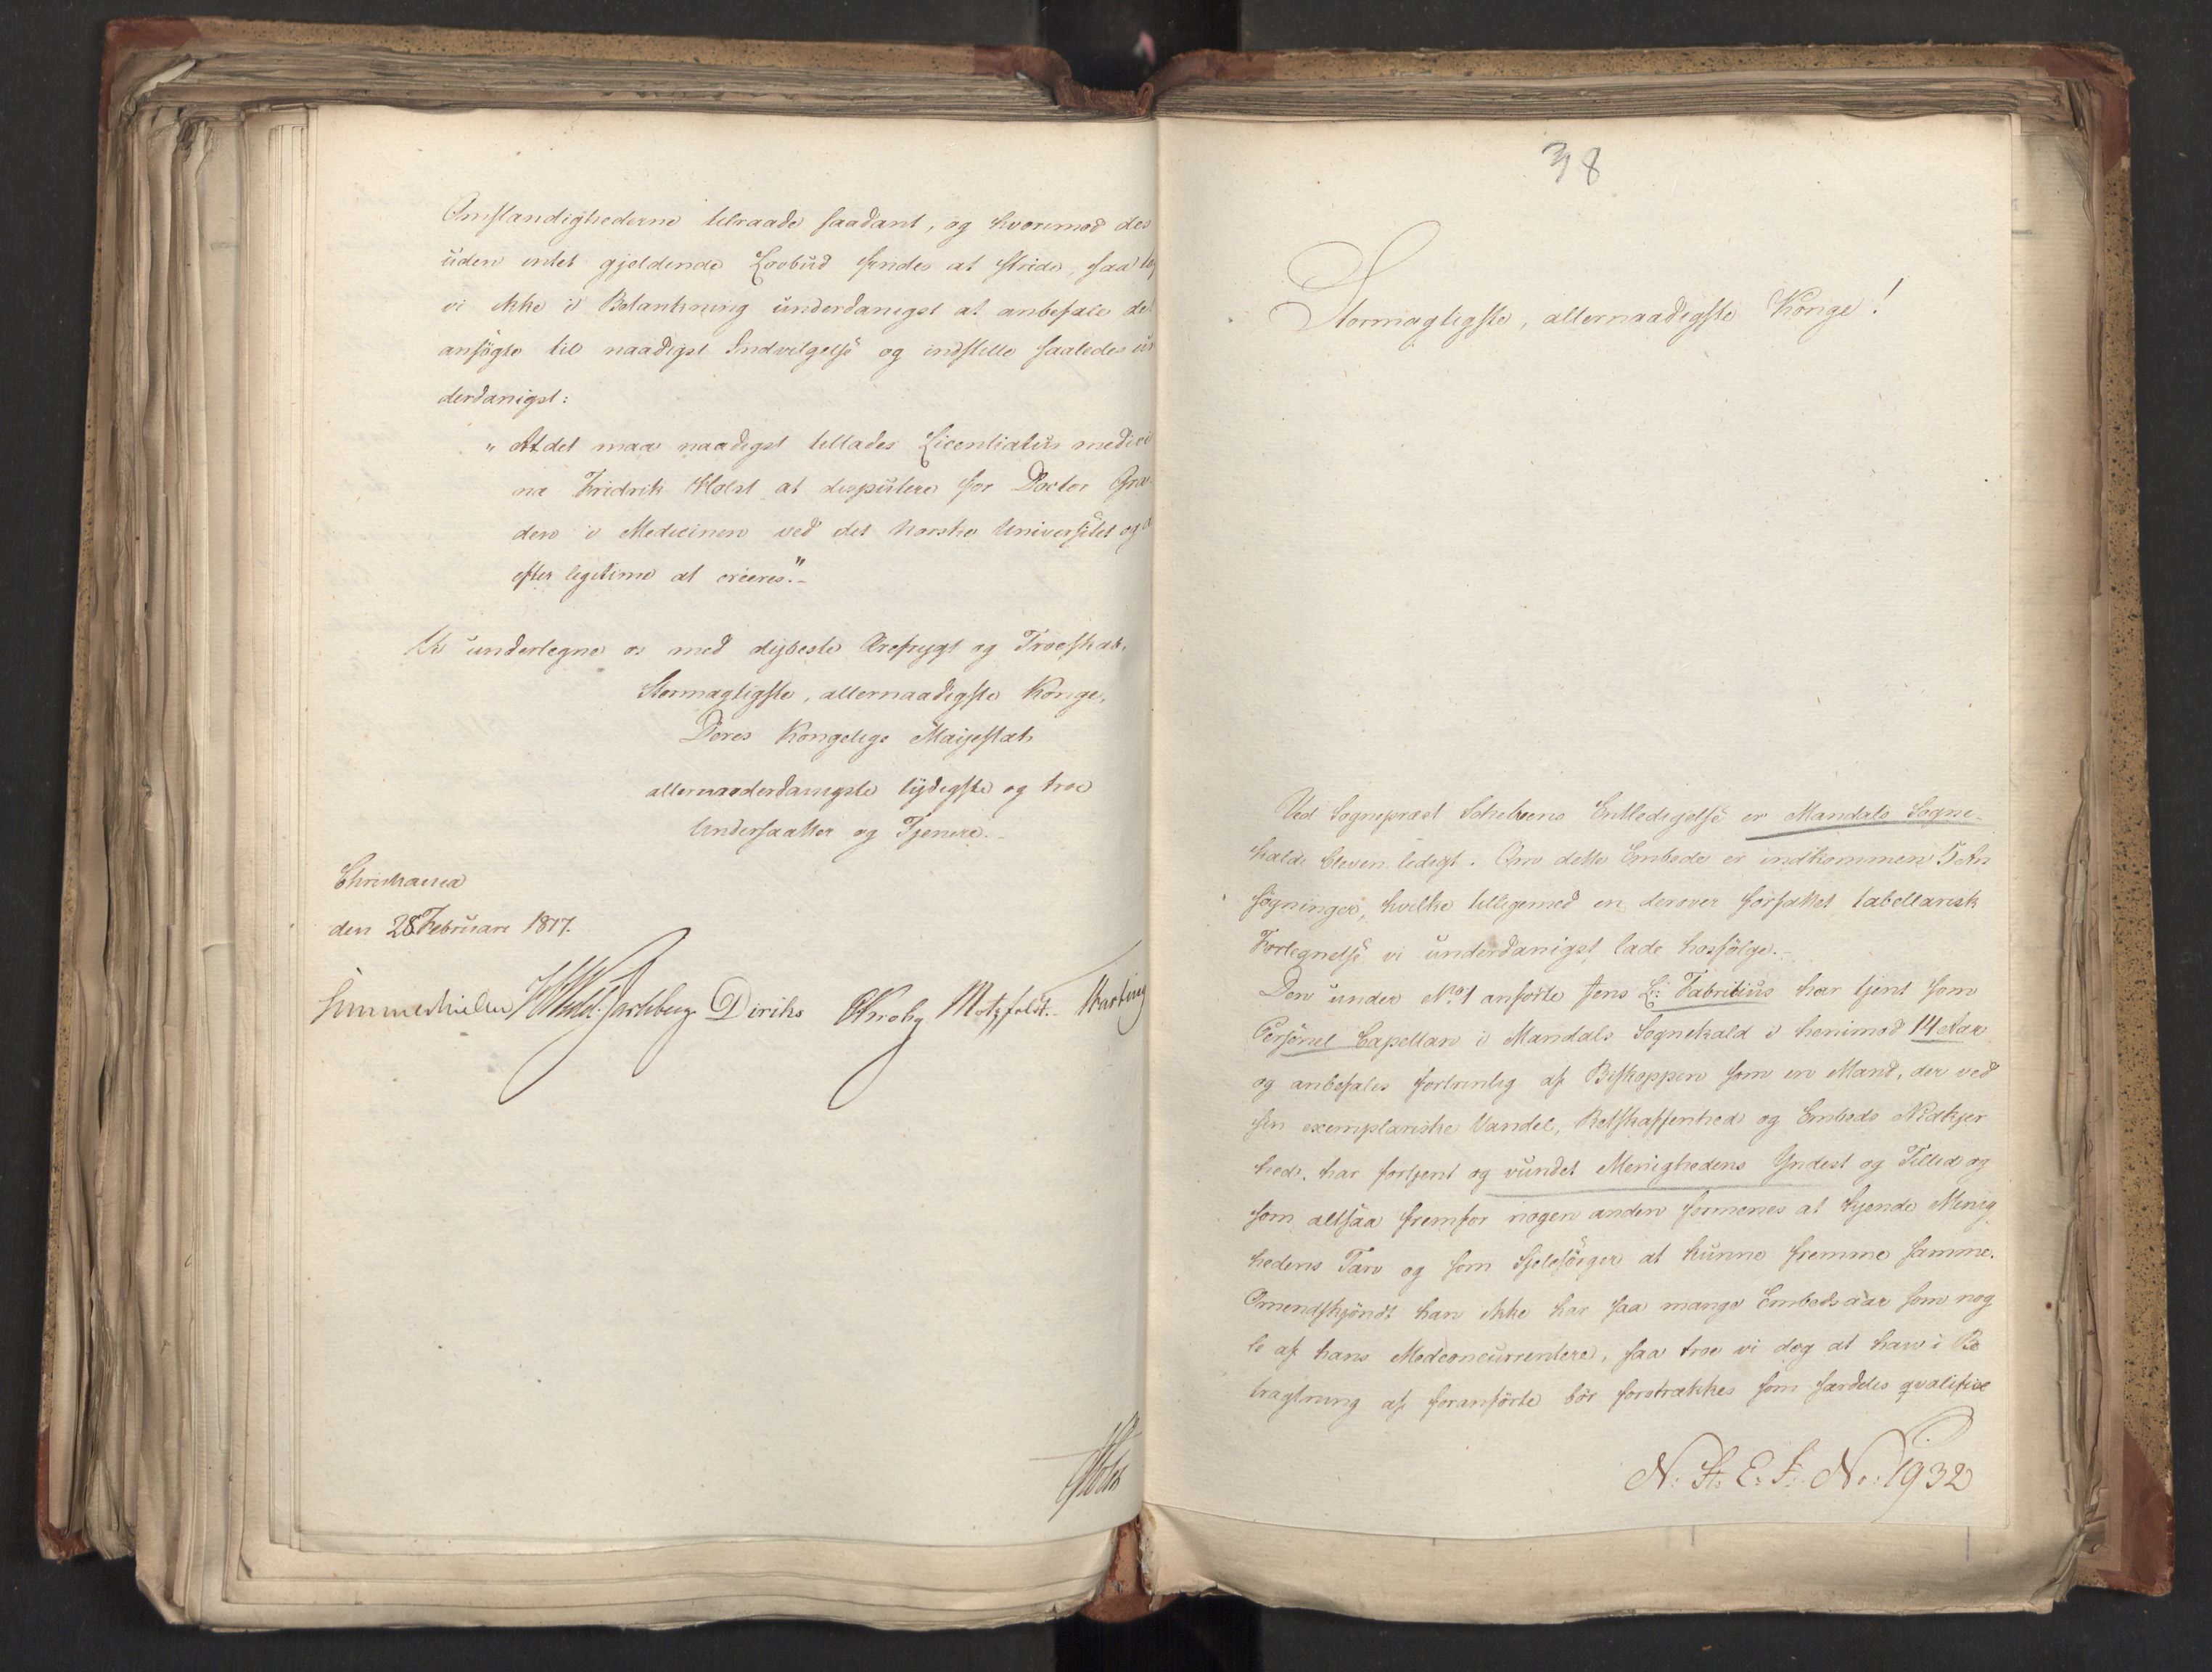 Omstændighederne tilraade saadant, og hvorimod des
uden intet gjeldende Lovbud synes at stride, saa
vi ikke i Betænkning underdanigst at anbefale det
ansøgte til naadigst Indvilgelse og indstille saaledes un
derdanigst:
" At det maa naadigst tillades Licentiatus medici
næ Fridrik Holst at disputere for Doctor Gra
den i Medicinen ved det norske Universitet og
efter legitime at creeres."-
Vi undertegne os med dybeste Ærefrygt og Troeskab,
Stormægtigste, allernaadigste Konge,
Deres Kongelige Maijestæts
allerunderdanigste lydigste og troe
Undersaatter og Tjenere.-
Christiania
den 28 Februari 1817.
Sommerhielm Wedel Jarlsberg Diriks Krohg Motzfeldt. Hartwig
Holst
38
Stormægtigste, allernaadigste Konge!
Ved Sognepræst Entledigelse er Mandals Sogne-
kald bleven ledigt. Om dette Embede er indkommen 5 An
søgninger, hvilke tilligemed en derover forfattet tabellarisk
Fortegnelse vi underdanigst lade hosfølge.-
Den under No 1 anførte Jens L: Fabritius har tjent som
Personel Capellan i Mandals Sognekald i henimod 14 Aar
og anbefales fortrinlig af Biskoppen som en Mand, der ved
sin exemplariske Vandel, Retskaffenhed og Embeds Nidkjer
hed, har fortjent og vundet Menighedens Yndest og Tillid og
som altsaa fremfor nogen anden formenes at kjende Menig
hedens Tarv og som Sjelesørger at kunne fremme samme.
Omendskjøndt han ikke har saa mange Embedsaar som nog
le af hans Medconcurrentere, saa troe vi dog at han i Be
tragtning af foranførte bør foretrækkes som særdeles qvalifice
N: St: E: J: No: 1932